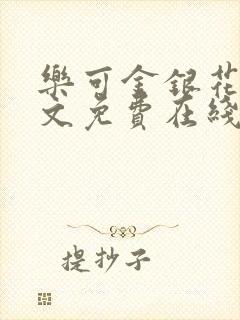 樂可金銀花
文免費在綫
提抄子